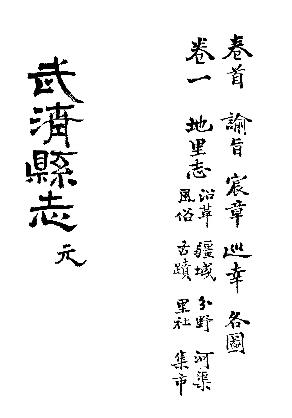 卷首 諭旨 宸章 巡幸 各圖
卷一 地里志 沿革 疆域 分野 河渠
風俗 古蹟 里社 集市
武清縣志 元